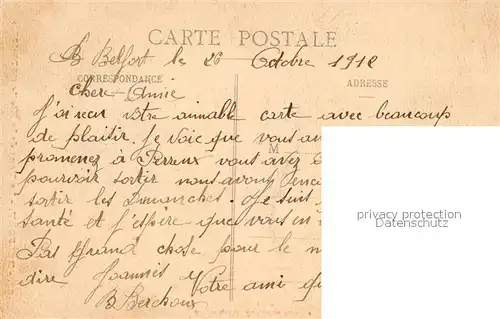 CARTE POSTALE
Belfort le 20 Octobre 1912
CORRESPONDANCE
ADRESSE
Chere Amie
J'ai recu votre aimable carte avec beaucoup
de plaitir. Je voie que vous
M
promenez à Perreux vous avez
pouvoir sortir nous avons
sortir les Dimanches. Je suis
santé et j'espère que vous en
Pas Grand chose pour le
dire Joannès Votre ami
B Berchoux
privacy protection
Datenschutz